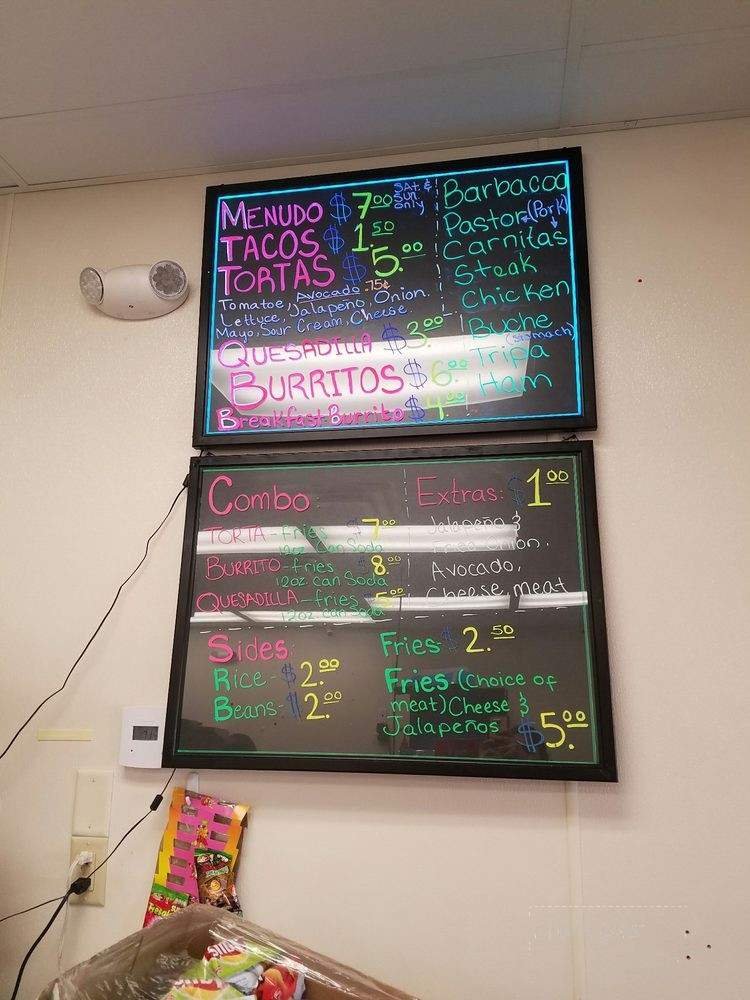 MENUDO $7.00 SAt. & Sun. only
TACOS $1.50
TORTAS $5.00
Tomatoe, Avocado .75¢
Lettuce, Jalapeño, Onion.
Mayo, Sour Cream, Cheese
QUESADILLA $3.00
BURRITOS $6.00
Breakfast Burrito $4.00
Barbacoa
Pastor (Pork)
Carnitas
Steak
Chicken
Buche
(Stomach)
Tripa
Ham
Combo:
TORTA - Fries $7.00
12oz. Can Soda
BURRITO - fries 8.00
12oz. can Soda
QUESADILLA - fries 5.00
12oz. can Soda
Extras: $1.00
Jalapeño &
Onion.
Avocado,
Cheese, meat
Sides:
Rice - $2.00
Beans - $2.00
Fries $2.50
Fries - (choice of
meat) Cheese &
Jalapeños $5.00